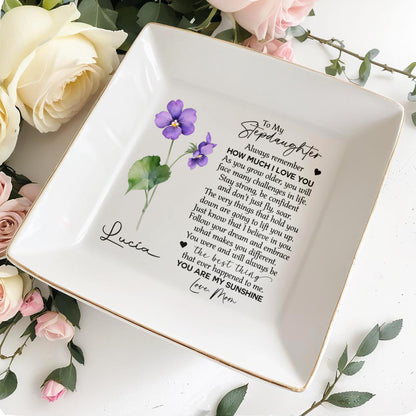 To My
Stepdaughter
Always remember
HOW MUCH I LOVE YOU
As you grow older, you will
face many challenges in life.
Stay strong, be confident
and don't just fly, soar.
The very things that hold you
down are going to lift you up.
Just know that I believe in you.
Follow your dream and embrace
what makes you different.
You were and will always be
the best thing
that ever happened to me.
YOU ARE MY SUNSHINE
Love Mom
Lucia